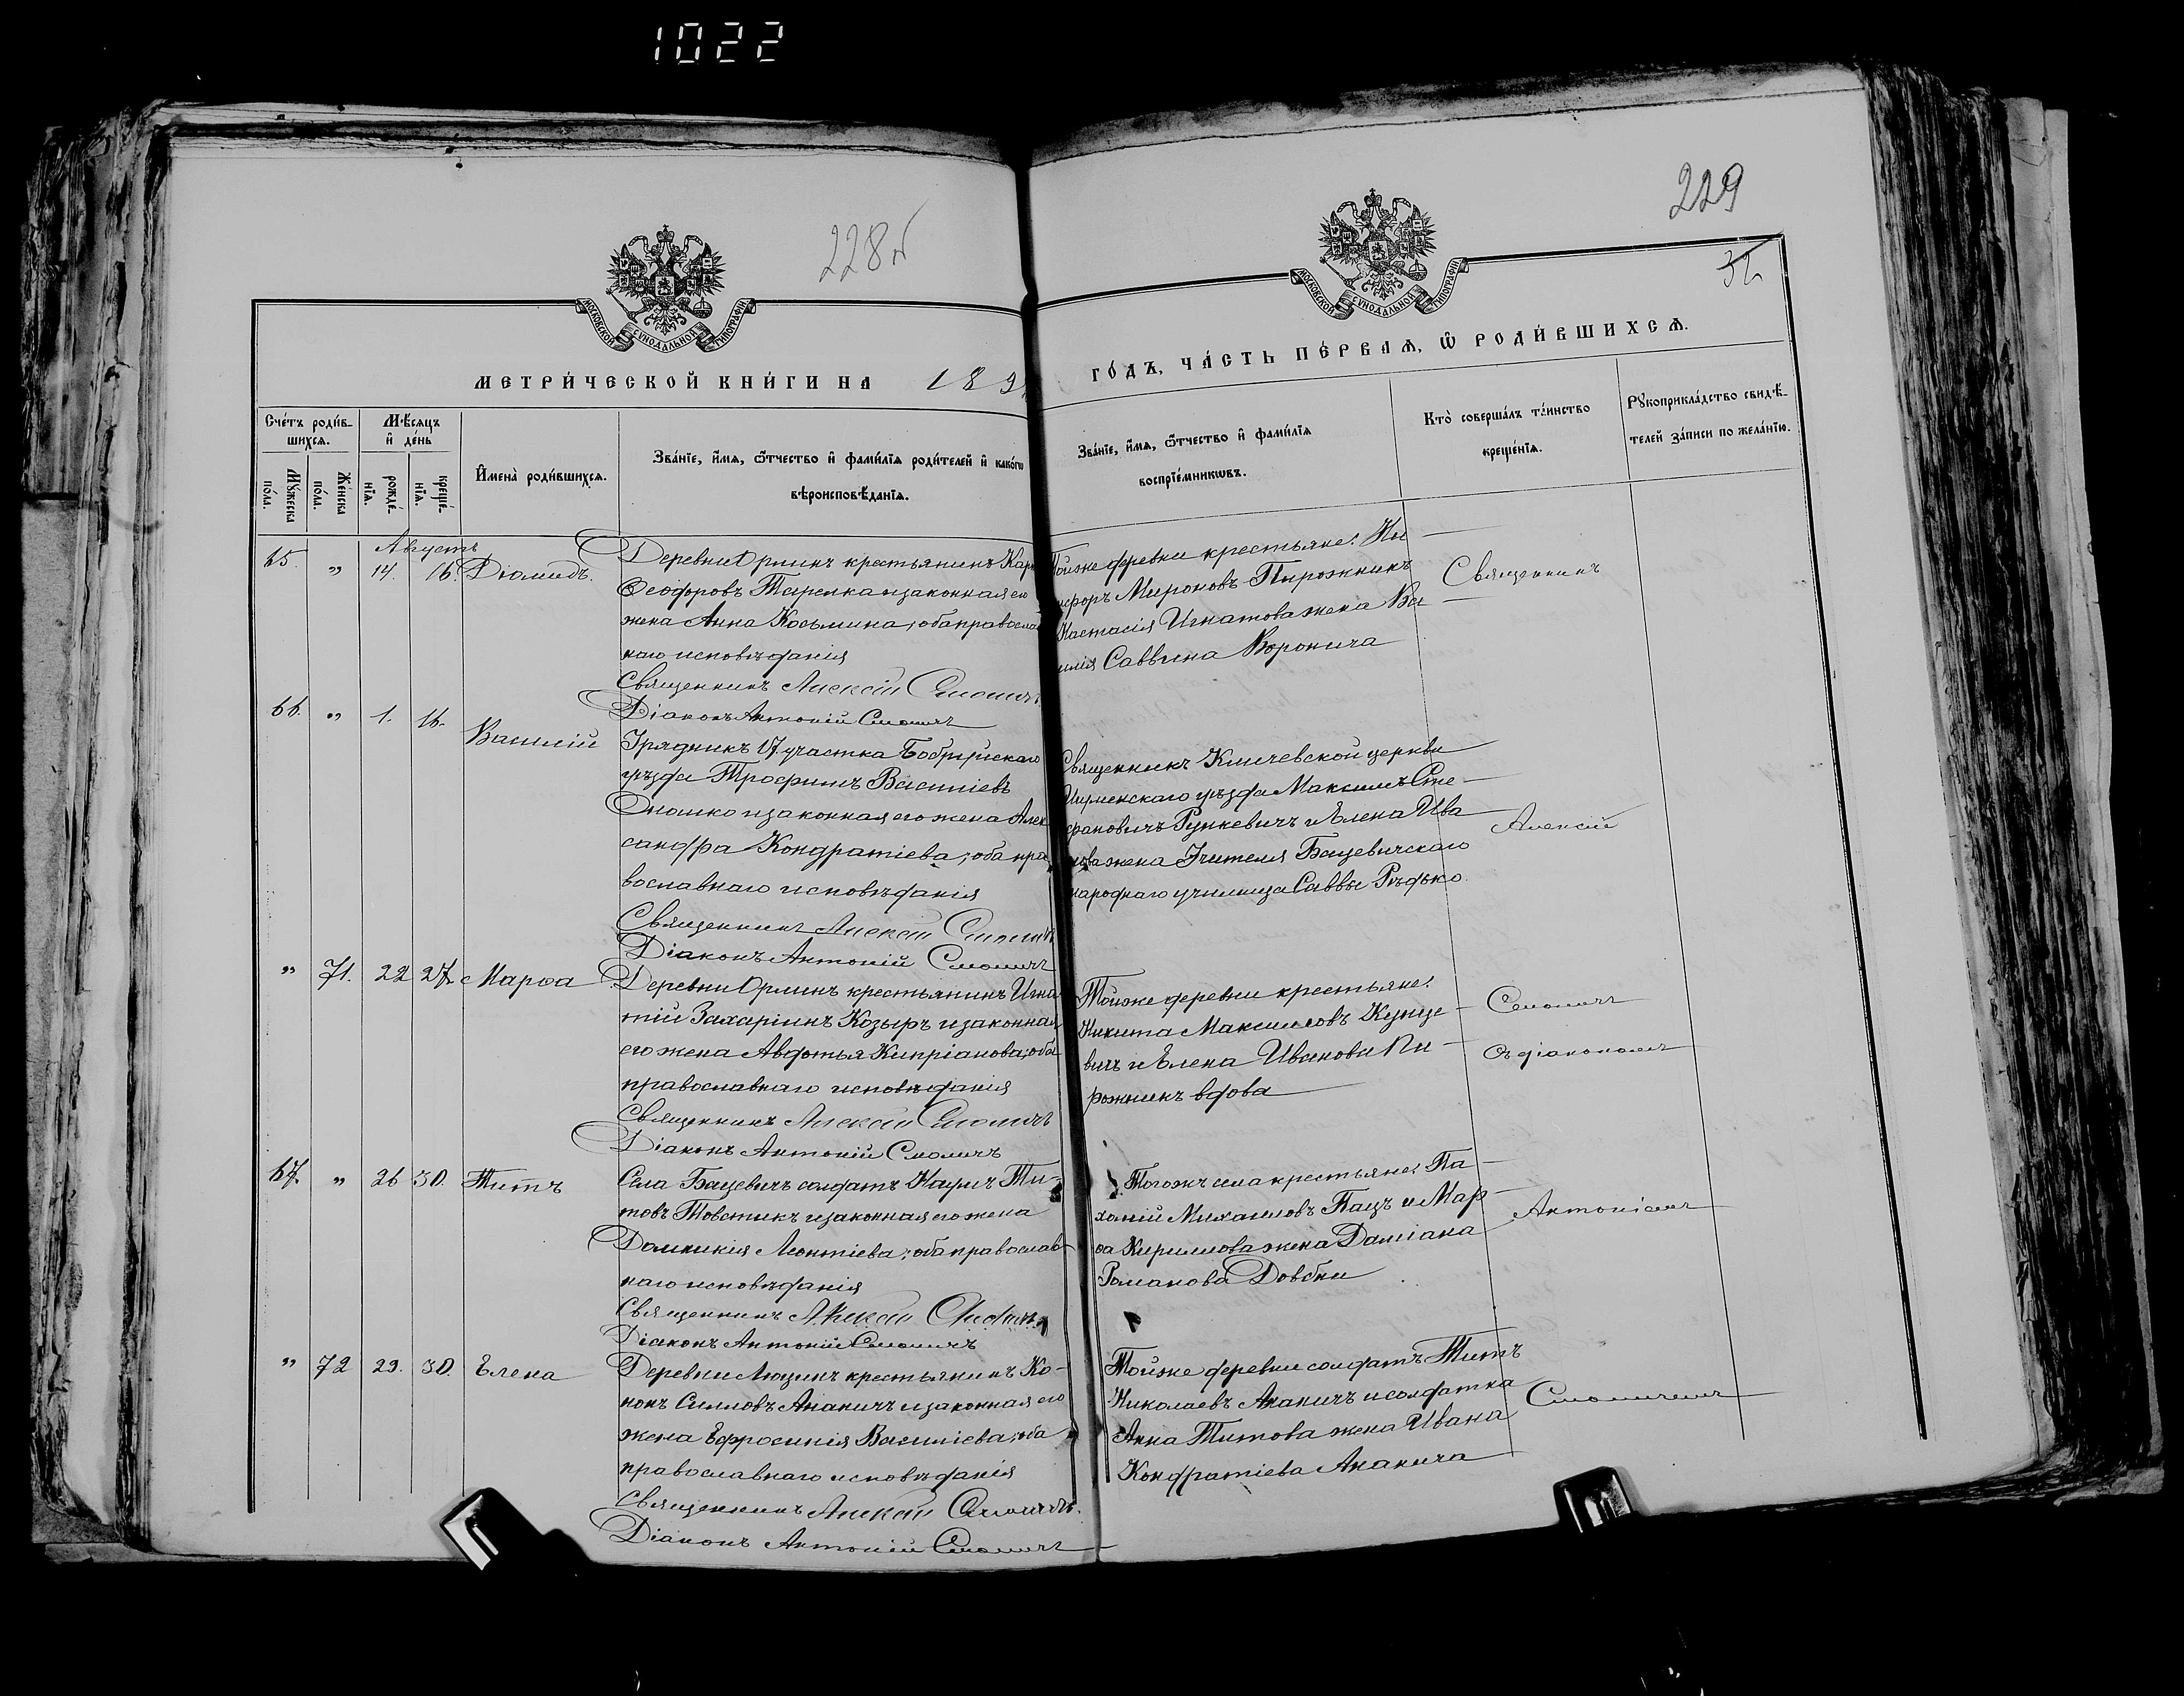 1022
228 об
229
32
МОСКОВСКОЙ СѴНОДАЛЬНОЙ ТИПОГРАФІИ
МОСКОВСКОЙ СѴНОДАЛЬНОЙ ТИПОГРАФІИ
МЕТРИ́ЧЕСКОЙ КНИ́ГИ НА 189
ГО́ДЪ, ЧА́СТЬ ПЕ́РВАѦ, Ѡ҆ РОДИ́ВШИХСѦ.
Сче́тъ роди́в-
шихсѧ.
Мꙋ́жеска
по́ла.
Же́нска
по́ла.
Мѣ́сѧцъ
и҆ де́нь
рожде́-
нїѧ.
креще́-
нїѧ.
И҆мена̀ роди́вшихсѧ.
Зва́нїе, и҆́мѧ, ѻ҆́тчество и҆ фами́лїѧ роди́телей и҆ како́гѡ
вѣроисповѣ́данїѧ.
Зва́нїе, и҆́мѧ, ѻ҆́тчество и҆ фами́лїѧ
воспрїе́мникѡвъ.
Кто̀ соверша́лъ та́инство
креще́нїѧ.
Рꙋкоприкла́дство свидѣ́-
телей за́писи по жела́нїю.
Августъ
65. " 14. 16. Діомидъ.
Деревни Орлинъ крестьянинъ Кар
Ѳеодоровъ Тарелка и законная его
жена Анна Косьмина; оба православ
наго исповѣданія
Священникъ Алексій Смоличъ
Діаконъ Антоній Смоличъ
Тойже деревни крестьяне: Ни
кифоръ Мироновъ Пирожникъ
Настасія Игнатова жена Ва
силія Саввина Воронича
Священникъ
66. " 1. 16. Василій
Урядникъ 17 участка Бобруйскаго
уѣзда Трофимъ Василіевъ
Сношко и законная его жена Алек
сандра Кондратіева; оба пра
вославнаго исповѣданія
Священникъ Алексій Смоличъ
Діаконъ Антоній Смоличъ
Священникъ Кличевской церкви
Игуменскаго уѣзда Максимъ Сте-
фановичъ Рункевичъ и Елена Ива
нова жена Учителя Бацевичскаго
народнаго училища Саввы Рѣдько
Алексій
" 71. 22 27. Марѳа
Деревни Орлинъ крестьянинъ Игна
тій Захаріинъ Козыръ и законная
его жена Авдотья Кипріанова; оба
православнаго исповѣданія
Священникъ Алексій Смоличъ
Діаконъ Антоній Смоличъ
Тойже деревни крестьяне:
Никита Максимовъ Кунце-
вичъ и Елена Иванова Пи-
рожникъ вдова
Смоличъ
съ діакономъ
67. " 26 30. Титъ
Села Бацевичъ солдатъ Наумъ Ти-
товъ Товстикъ и законная его жена
Домникія Леонтіева; оба православ
наго исповѣданія
Священникъ Алексій Смоличъ
Діаконъ Антоній Смоличъ
Тогожъ села крестьяне: Па-
хомій Михаиловъ Пацъ и Мар-
ѳа Кириллова жена Даміана
Романова Довбни
Антоніемъ
" 72 29. 30. Елена
Деревни Люзинъ крестьянинъ Ко-
нонъ Силловъ Ананичъ и законная его
жена Ефросинія Василіева; оба
православнаго исповѣданія
Священникъ Алексій Смоличъ.
Діаконъ Антоній Смоличъ
Тойже деревни солдатъ Титъ
Николаевъ Ананичъ и солдатка
Анна Титова жена Ивана
Кондратіева Ананича
Смоличемъ